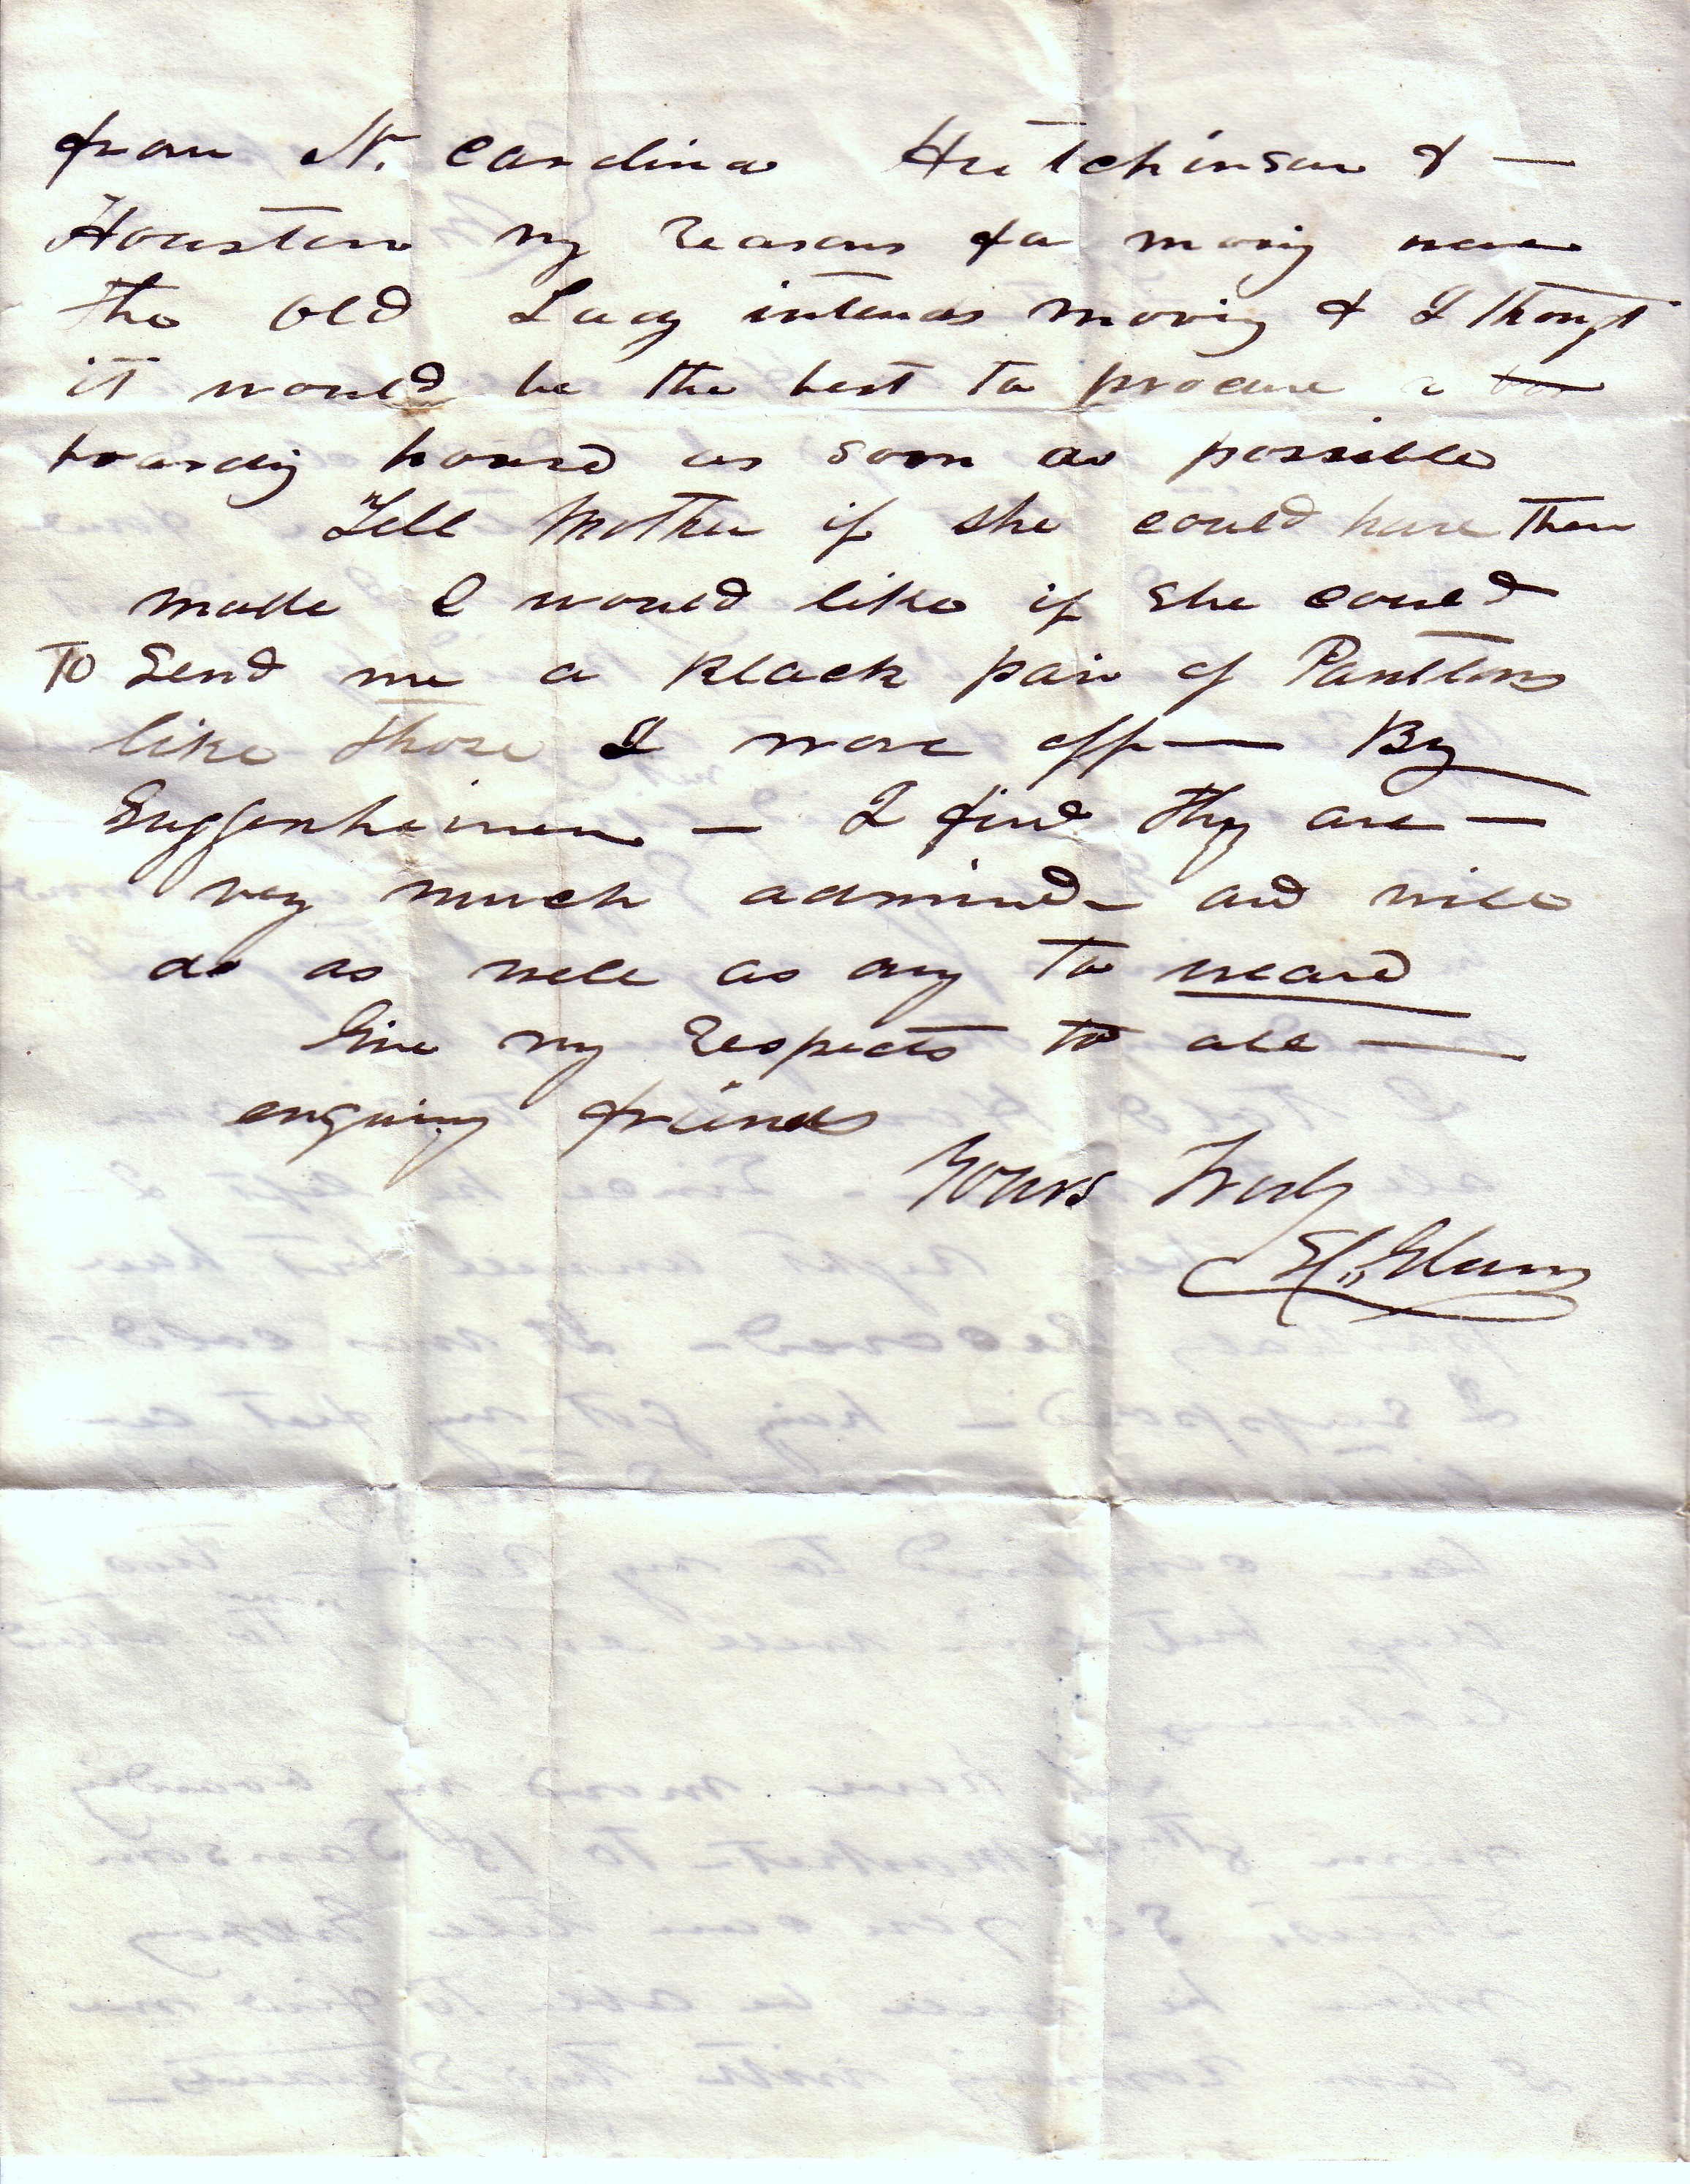 from N. Carolina Hutchinson & —
Houston my Reasons for moving were
the old Lady intends moving & I thought
it would be the best to procure a
boarding house as soon as possible
Tell Mother if she could have them
made I would like if she could
To Send me a Black pair of Pantlons
like those I wore off — By
Guggenheimer — I find they are —
very much admired — and will
do as well as any to weard
Give my Respects to all —
enquiring friends
Yours Truly